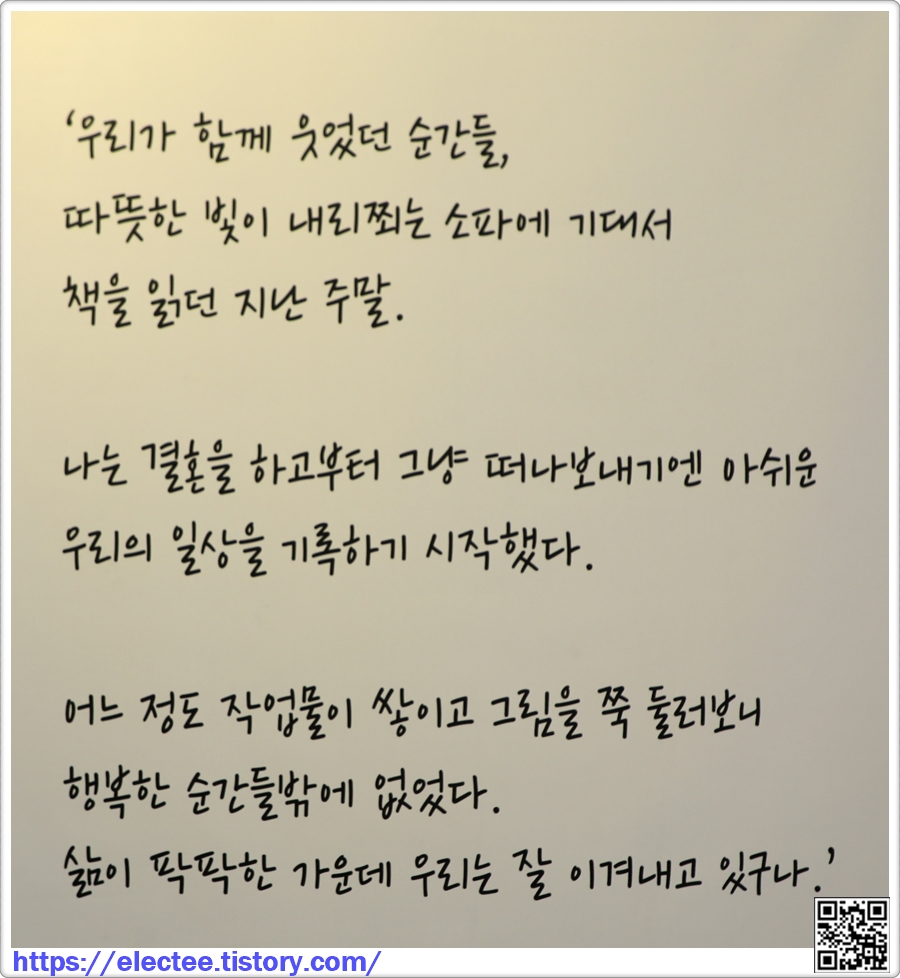 ‘우리가 함께 웃었던 순간들,
따뜻한 빛이 내리쬐는 소파에 기대서
책을 읽던 지난 주말.
나는 결혼을 하고부터 그냥 떠나보내기엔 아쉬운
우리의 일상을 기록하기 시작했다.
어느 정도 작업물이 쌓이고 그림을 쭉 둘러보니
행복한 순간들밖에 없었다.
삶이 팍팍한 가운데 우리는 잘 이겨내고 있구나.’
https://electee.tistory.com/